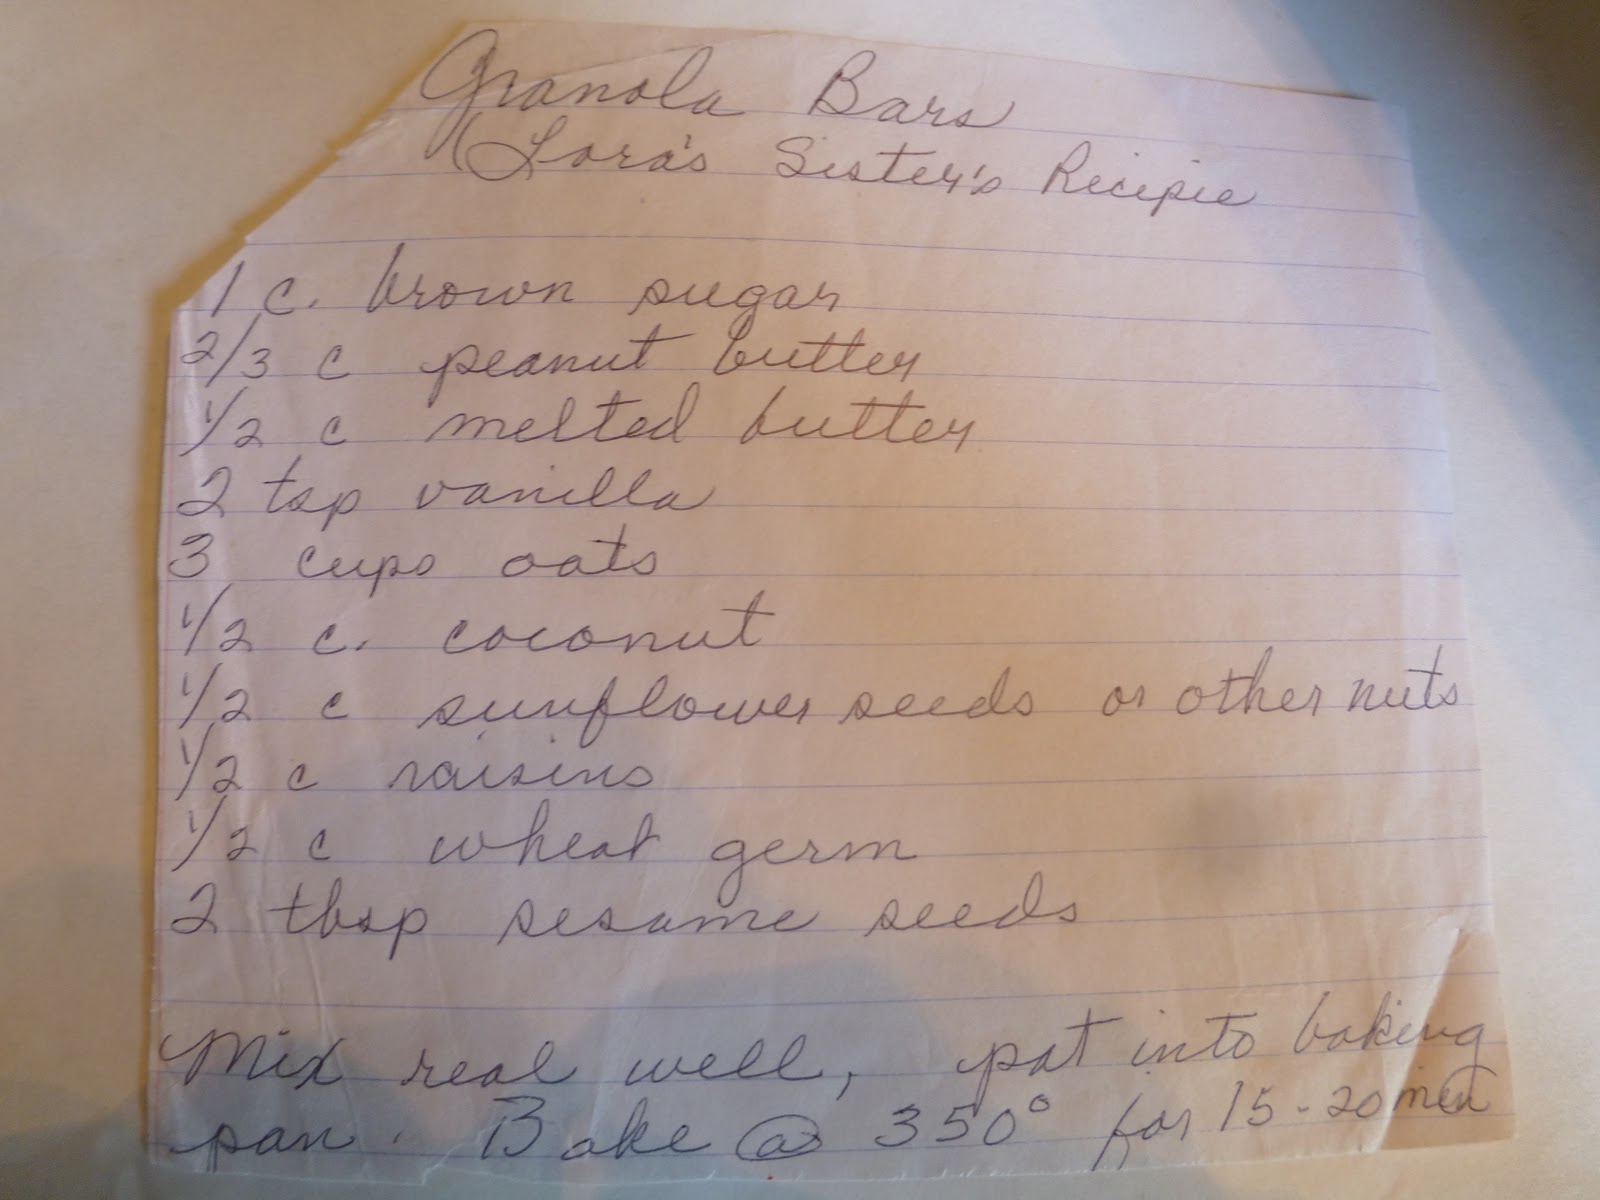 Granola Bars
(Lora's Sister's Recipie
1 c. brown sugar
2/3 c peanut butter
1/2 c melted butter
2 tsp vanilla
3 cups oats
1/2 c. coconut
1/2 c sunflower seeds or other nuts
1/2 c raisins
1/2 c wheat germ
2 tbsp sesame seeds
Mix real well, pat into baking
pan. Bake @ 350° for 15-20 min